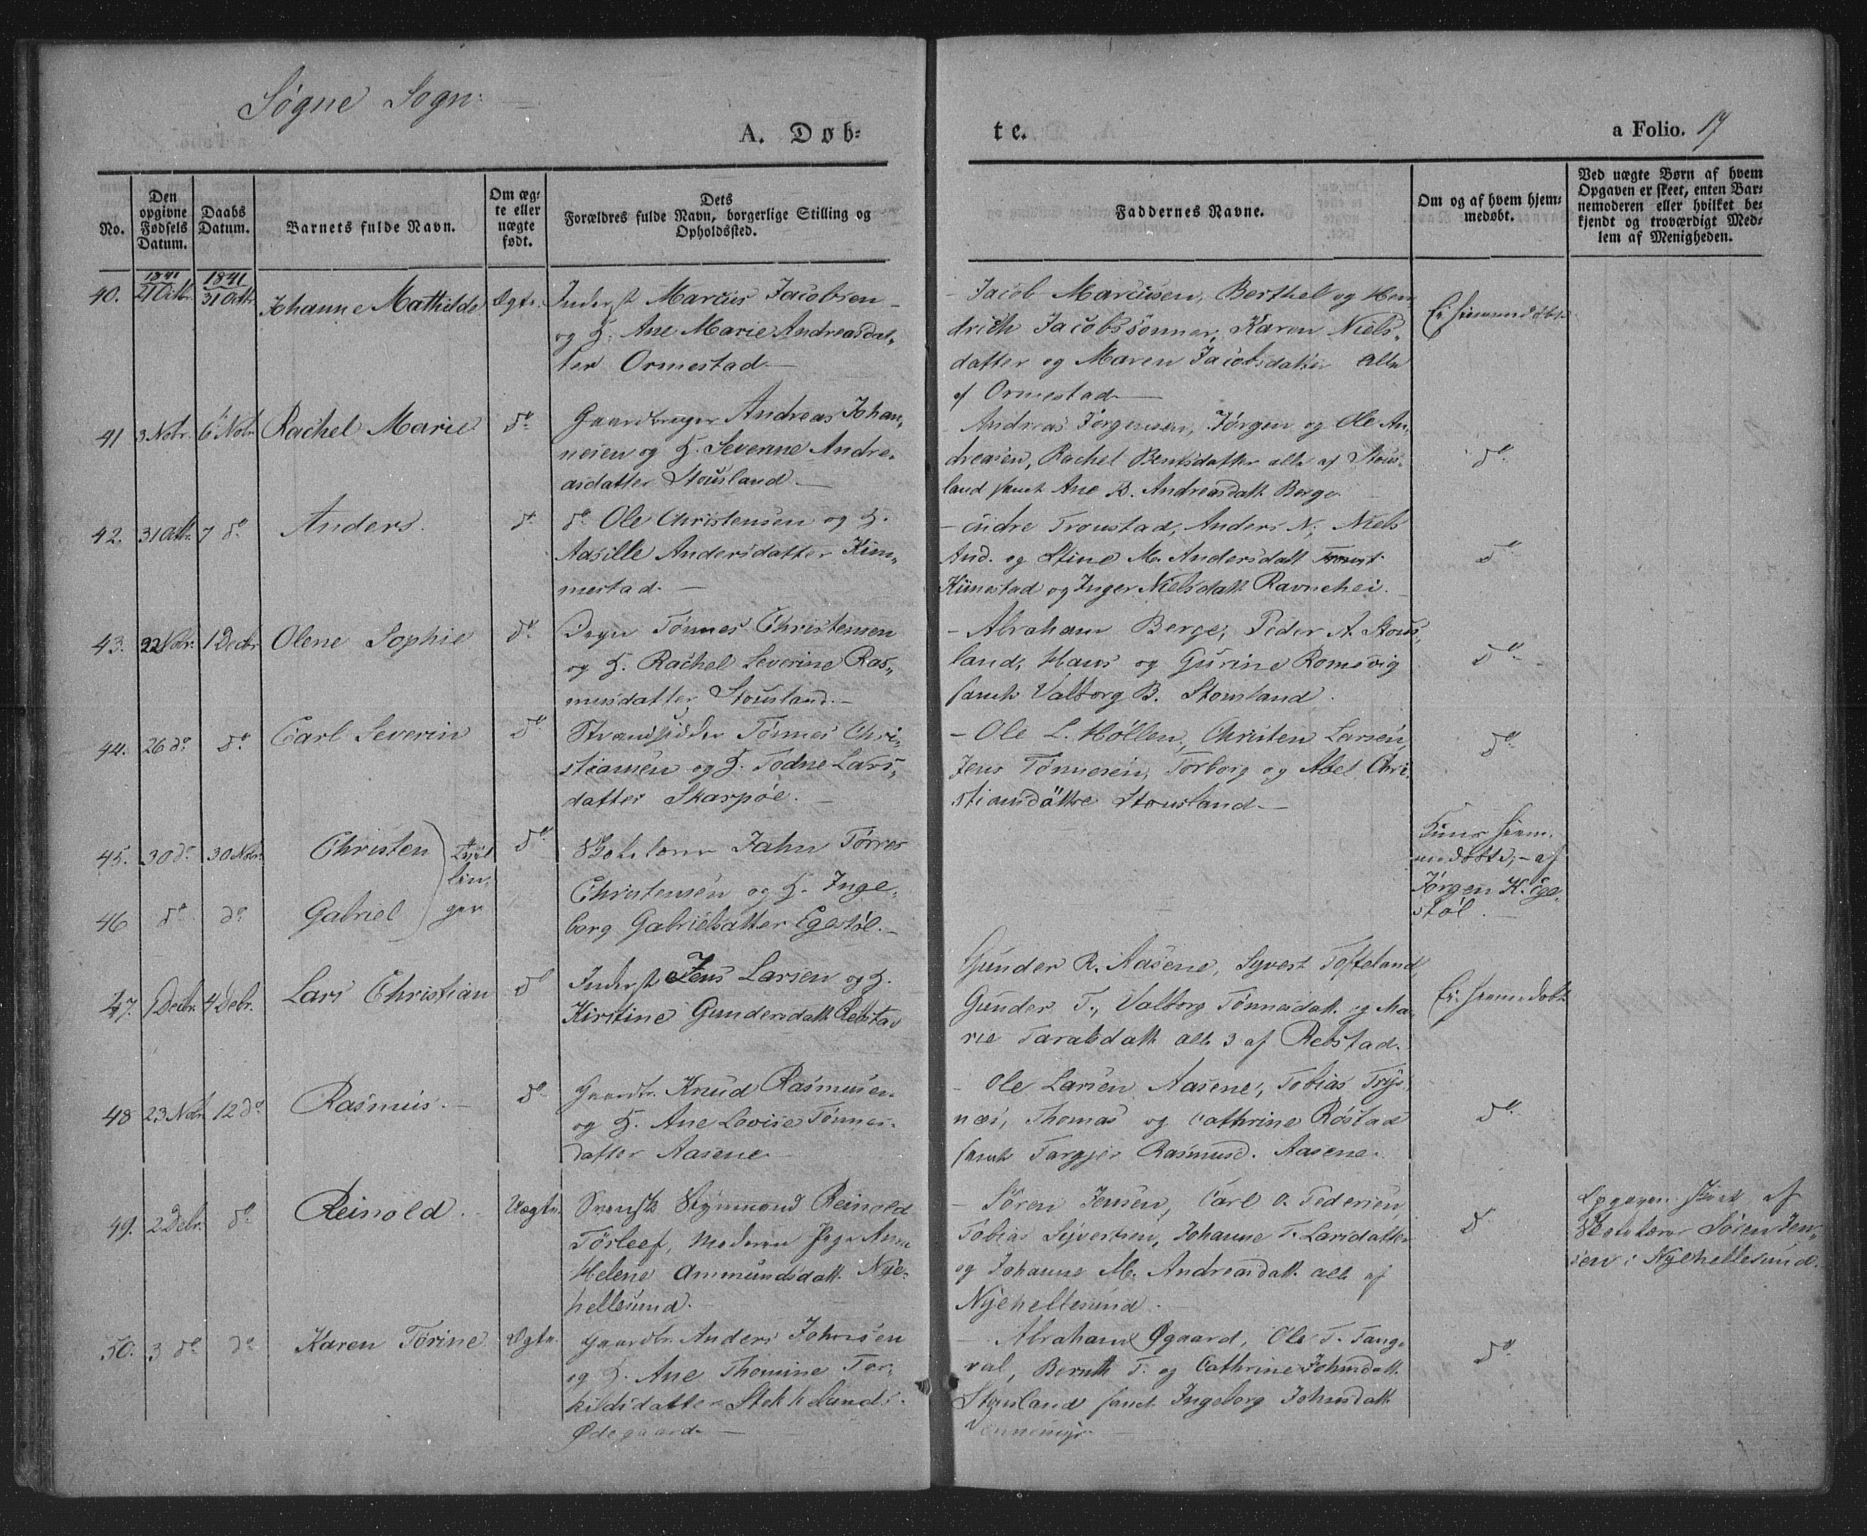 Søgne Sogn
A. Døb-
te.
a Folio. 17
No.
Den opgivne Fødsels Datum.
Daabs Datum.
Barnets fulde Navn.
Om ægte eller nægte født.
Dets Forældres fulde Navn, borgerlige Stilling og Opholdssted.
Faddernes Navne.
Om og af hvem hjemmedøbt.
Ved uægte Børn af hvem Opgaven er skeet, enten Barnemoderen eller hvilket bekjendt og troværdigt Medlem af Menigheden.
1841 1841
40. 21 Octbr. 31 Octbr. Johanne Mathilde Ægte. Inderst Marcus Jacobsen
og H. Ane Marie Andreasdat-
ter Ormestad
Jacob Marcusen, Berthel og Hen
drich Jacobssønner, Karen Niels-
datter og Maren Jacobsdatter alle
af Ormestad
Ei hjemmedøbt
41 3 Nobr. 6 Nobr. Rachel Marie do Gaardbruger Andreas Johan-
nesen og H. Severine Andre-
asdatter Stousland
Andreas Jørgensen, Jørgen og Ole An-
dreasen, Rachel Bentsdatter alle af Stous-
land samt Ane B. Andreasdatt Berge
do
42. 31 Octbr. 7 do Anders do do Ole Christensen og H.
Aasille Andersdatter Kim-
mestad.
Trønstad, Anders N., Niels
And. og Stine M. Andersdatt
Kimestad og Inger Nielsdatt Ravnehei.
do
43. 22 Nobr. 1 Decbr Olene Sophie do Tønnes Christensen
og H. Rachel Severine Ras-
musdatter Stousland.
Abraham Berge, Peder A. Stous-
land, Hans og Gurine Romsvig
samt Valborg B. Stousland.
do
44. 26 do do Carl Severin do Strandsidder Tønnes Chri-
stiansen og H. Todne Lars-
datter Skarpøe.
Ole L. Høllen, Christen Larsen,
Jens Tønnesen, Torborg og Abel Chri
stiansdøttre Stousland
do
45. 30 do 30 Nobr. Christen Tvil do John Tørres
lin- Christensen og H. Inge-
46 do do Gabriel ger borg Gabrielsdatter Egestøl.
Kuns hjem-
medøbte, af
Jørgen K. Ege-
støl.
47. 1 Decbr. 4 Debr. Lars Christian do Inderst Jens Larsen og H.
Kirstine Gundersdatt Rebstad
Gunder R. Aasene, Syvert Tofteland,
Gunder T., Valborg Tønnesdatt og Ma-
rie Taraldsdatt alle 3 af Rebstad.
Ei hjemmedøbt
48 23 Nobr. 12 do Rasmus do Gaardbr. Knud Rasmusen
og H. Ane Lovise Tønnes-
datter Aasene
Ole Larsen Aasene, Tobias Trys-
næs, Thomas og Cathrine Røstad
samt Targjer Rasmusd. Aasene.
do
49. 2 Debr. do Reinold Uægte. Svensk Reinold
Tørleef, Moderen Pige Anne
Helene Ammundsdatt. Nye-
hellesund.
Søren Jensen, Carl O. Pedersen
Tobias Syvertsen, Johanne T. Larsdatter
og Johanne M. Andreasdatt. alle af
Nyehellesund.
do
Opgaven skeet af
Søren Jen-
sen i Nyehellesund.
50. 3 do do Karen Torine Ægte. Gaardbr. Anders Johnsen
og H. Ane Thomine Tor-
kildsdatter Stokkelands
Ødegaard
Abraham Øgaard, Ole T. Tang-
val, Bernth T. og Cathrine Johnsdatt
Stousland samt Ingeborg Johnsdatt
do